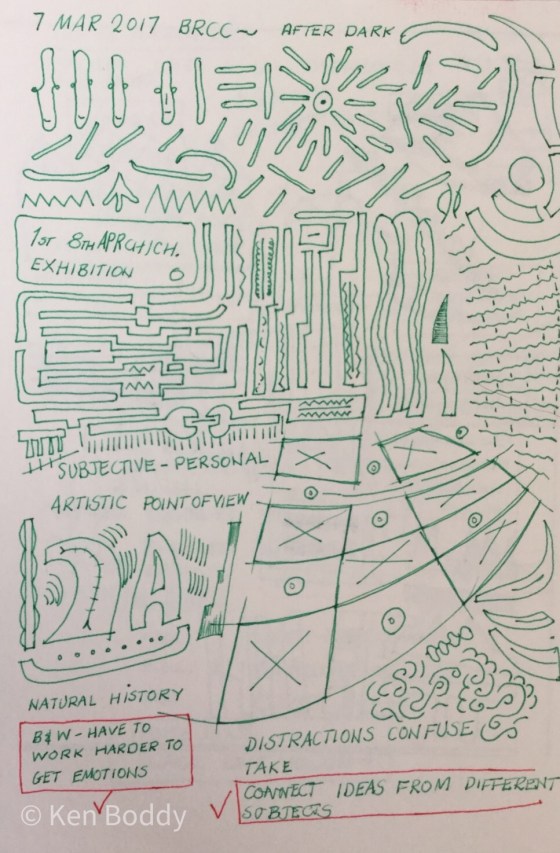 7 MAR 2017 BRCC~ AFTER DARK
1ST 8TH APR CH/CH.
EXHIBITION
SUBJECTIVE - PERSONAL
ARTISTIC POINT OF VIEW
NATURAL HISTORY
B&W - HAVE TO
WORK HARDER TO
GET EMOTIONS
DISTRACTIONS CONFUSE
TAKE
CONNECT IDEAS FROM DIFFERENT
SUBJECTS
© Ken Boddy